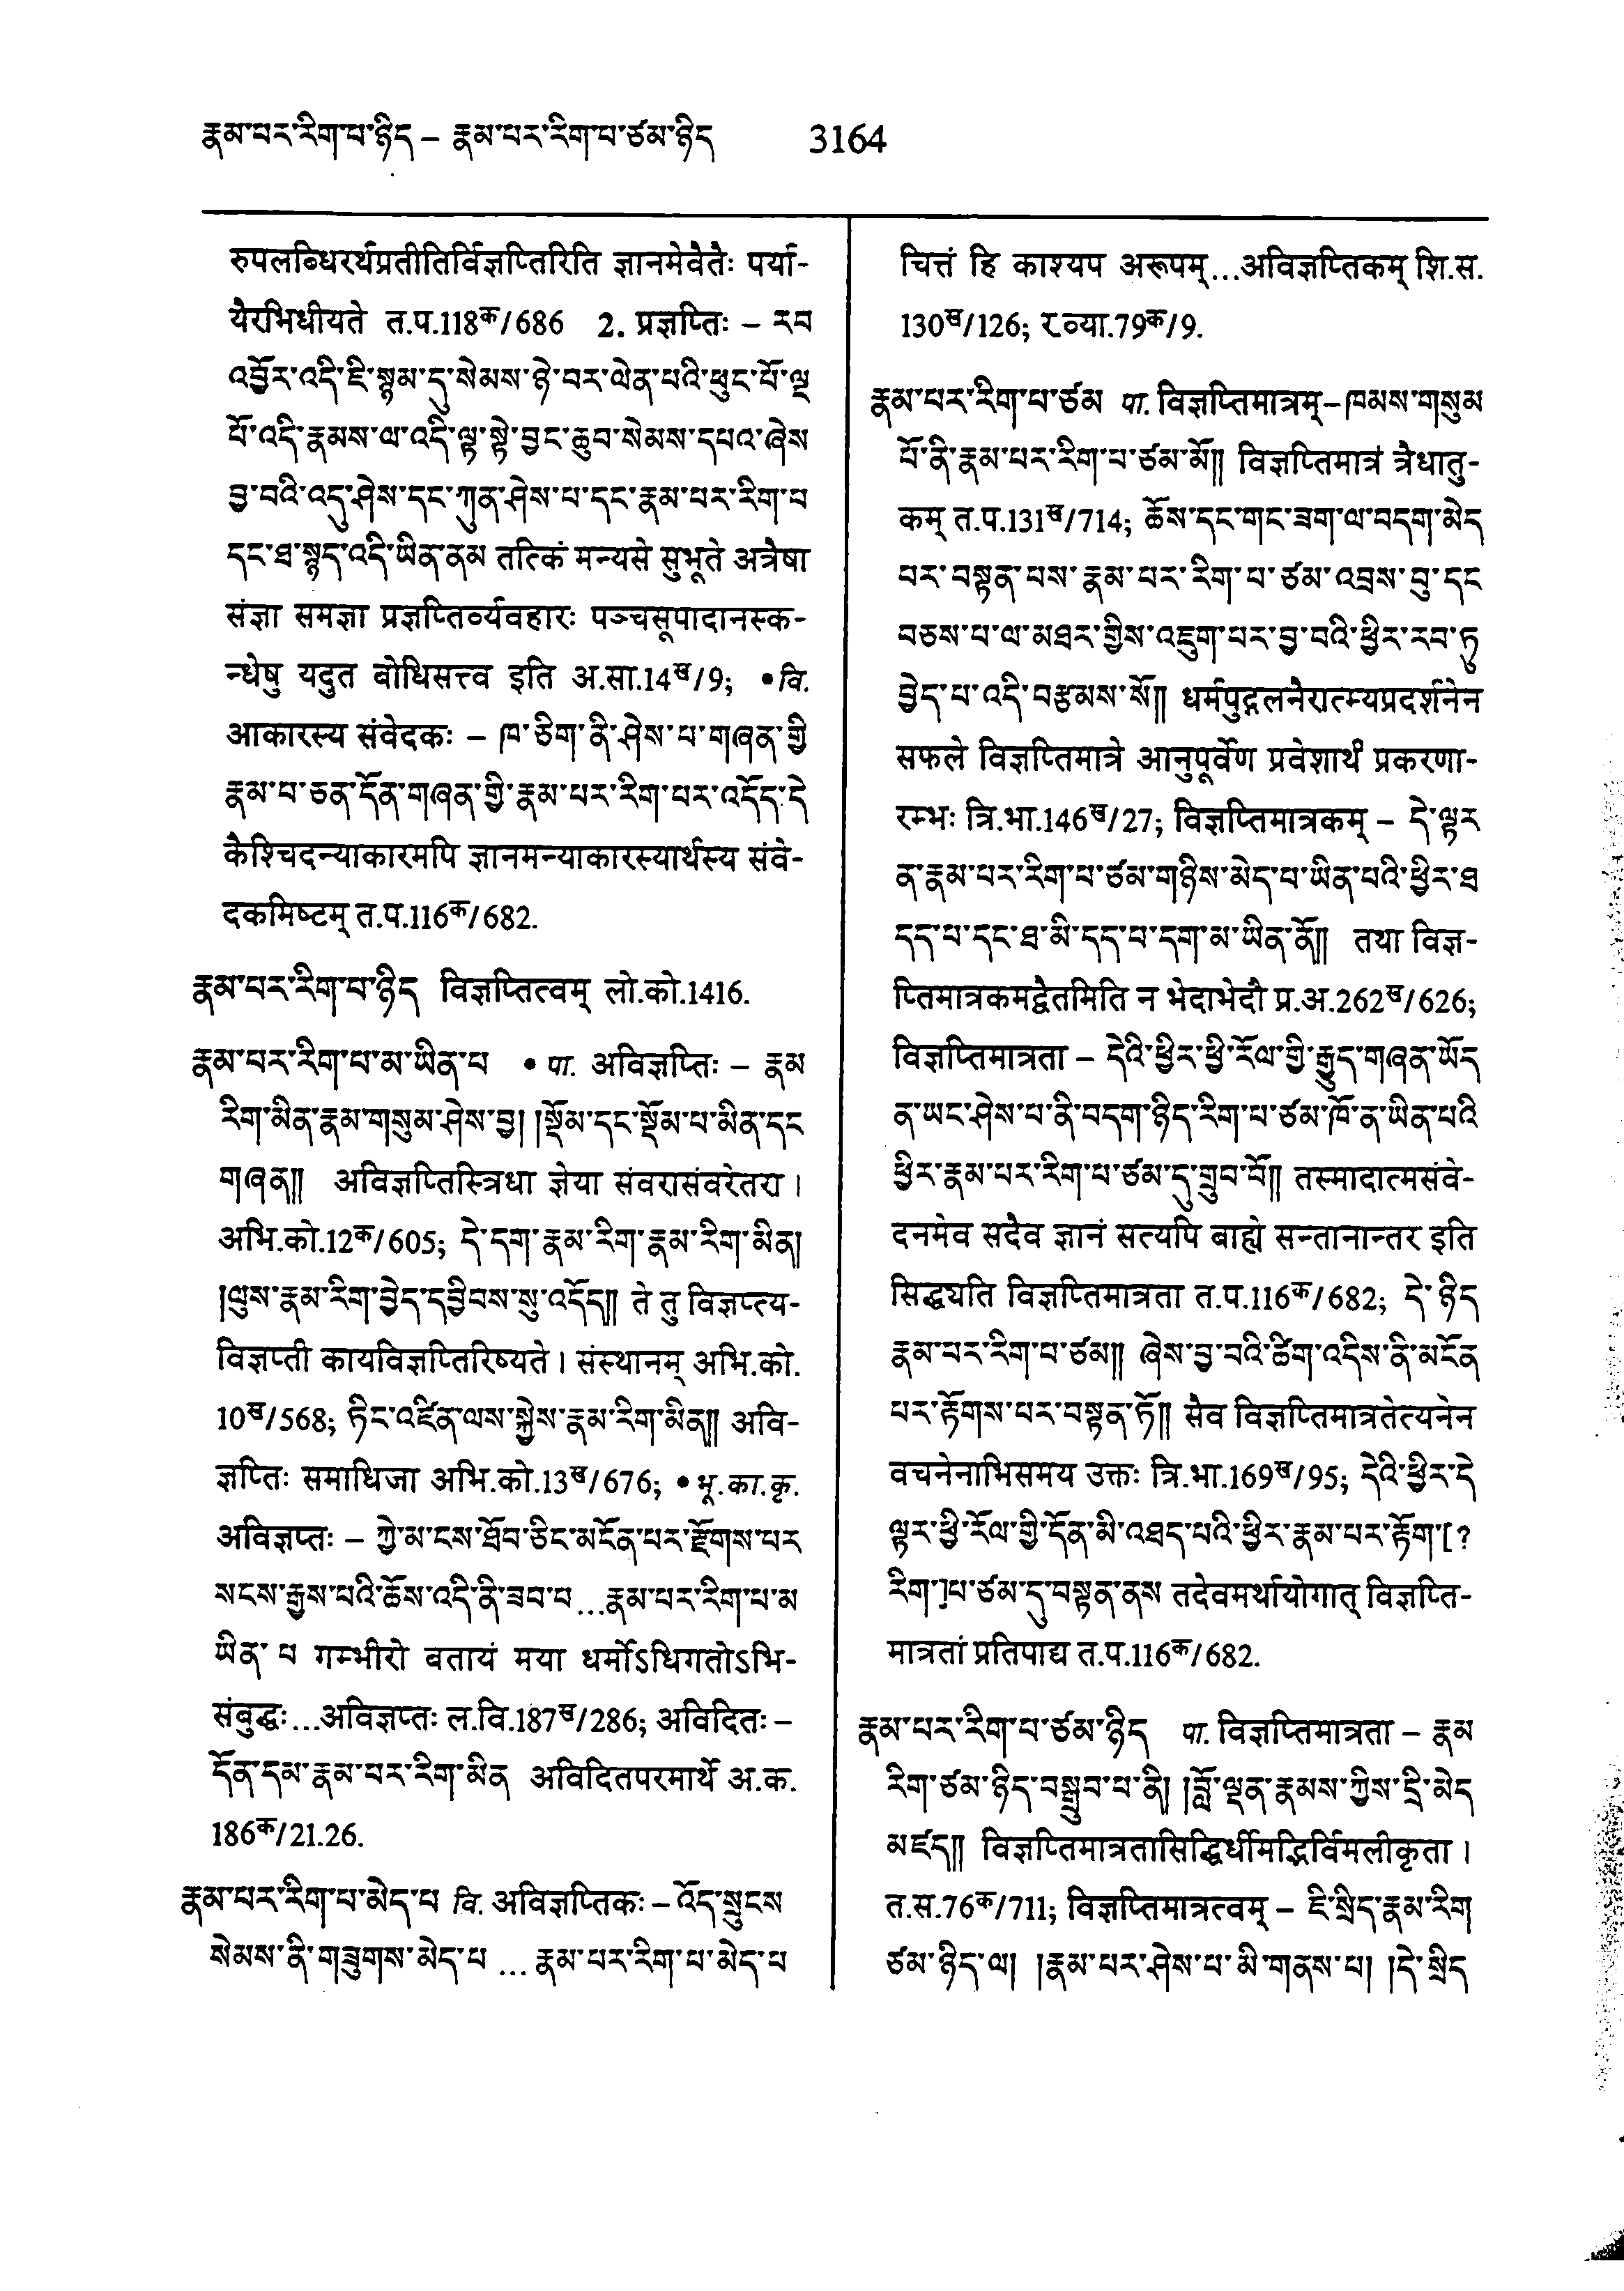 རྣམ་པར་རིག་པ་ཉིད – རྣམ་པར་རིག་པ་ཙམ་ཉིད 3164
रुपलब्धिरर्थप्रतीतिर्विज्ञप्तिरिति ज्ञानमेवैतैः पर्या-
यैरभिधीयते त.प.118क/686 2. प्रज्ञप्तिः – རབ
འབྱོར་འདི་ཇི་སྙམ་དུ་སེམས་ཉེ་བར་ལེན་པའི་ཕུང་པོ་ལྔ
པོ་འདི་རྣམས་ལ་འདི་ལྟ་སྟེ་བྱང་ཆུབ་སེམས་དཔའ་ཞེས
བྱ་བའི་འདུ་ཤེས་དང་ཀུན་ཤེས་པ་དང་རྣམ་པར་རིག་པ
དང་ཐ་སྙད་འདི་ཡིན་ནམ तत्किं मन्यसे सुभूते अत्रैषा
संज्ञा समज्ञा प्रज्ञप्तिर्व्यवहारः पञ्चसूपादानस्क-
न्धेषु यदुत बोधिसत्त्व इति अ.सा.14ख/9; • वि.
आकारस्य संवेदकः – ཁ་ཅིག་ནི་ཤེས་པ་གཞན་གྱི
རྣམ་པ་ཅན་དོན་གཞན་གྱི་རྣམ་པར་རིག་པར་འདོད་དེ
कैश्चिदन्याकारमपि ज्ञानमन्याकारस्यार्थस्य संवे-
दकमिष्टम् त.प.116क/682.
རྣམ་པར་རིག་པ་ཉིད विज्ञप्तित्वम् लो.को.1416.
རྣམ་པར་རིག་པ་མ་ཡིན་པ • पा. अविज्ञप्तिः – རྣམ
རིག་མིན་རྣམ་གསུམ་ཤེས་བྱ། །སྡོམ་དང་སྡོམ་པ་མིན་དང
གཞན།། अविज्ञप्तिस्त्रिधा ज्ञेया संवरासंवरेतरा ।
अभि.को.12क/605; དེ་དག་རྣམ་རིག་རྣམ་རིག་མིན།
།ལུས་རྣམ་རིག་བྱེད་དབྱིབས་སུ་འདོད།། ते तु विज्ञप्त्य-
विज्ञप्ती कायविज्ञप्तिरिष्यते । संस्थानम् अभि.को.
10ख/568; ཏིང་འཛིན་ལས་སྐྱེས་རྣམ་རིག་མིན།། अवि-
ज्ञप्तिः समाधिजा अभि.को.13ख/676; • भू.का.कृ.
अविज्ञप्तः – ཀྱེ་མ་ངས་ཐོབ་ཅིང་མངོན་པར་རྫོགས་པར
སངས་རྒྱས་པའི་ཆོས་འདི་ནི་ཟབ་པ...རྣམ་པར་རིག་པ་མ
ཡིན་པ गम्भीरो बतायं मया धर्मोऽधिगतोऽभि-
संबुद्धः...अविज्ञप्तः ल.वि.187ख/286; अविदितः –
དོན་དམ་རྣམ་པར་རིག་མིན अविदितपरमार्थो अ.क.
186क/21.26.
རྣམ་པར་རིག་པ་མེད་པ वि. अविज्ञप्तिकः – འོད་སྲུངས
སེམས་ནི་གཟུགས་མེད་པ ... རྣམ་པར་རིག་པ་མེད་པ
चित्तं हि काश्यप अरूपम्...अविज्ञप्तिकम् शि.स.
130ख/126; र.व्या.79क/9.
རྣམ་པར་རིག་པ་ཙམ पा. विज्ञप्तिमात्रम् – ཁམས་གསུམ
པོ་ནི་རྣམ་པར་རིག་པ་ཙམ་མོ།། विज्ञप्तिमात्रं त्रैधातु-
कम् त.प.131ख/714; ཆོས་དང་གང་ཟག་ལ་བདག་མེད
པར་བསྟན་པས་རྣམ་པར་རིག་པ་ཙམ་འབྲས་བུ་དང
བཅས་པ་ལ་མཐར་གྱིས་འཇུག་པར་བྱ་བའི་ཕྱིར་རབ་ཏུ
བྱེད་པ་འདི་བརྩམས་སོ།། धर्मपुद्गलनैरात्म्यप्रदर्शनेन
सफले विज्ञप्तिमात्रे आनुपूर्वेण प्रवेशार्थं प्रकरणा-
रम्भः त्रि.भा.146ख/27; विज्ञप्तिमात्रकम् – དེ་ལྟར
ན་རྣམ་པར་རིག་པ་ཙམ་གཉིས་མེད་པ་ཡིན་པའི་ཕྱིར་ཐ
དད་པ་དང་ཐ་མི་དད་པ་དག་མ་ཡིན་ནོ།། तथा विज्ञ-
प्तिमात्रकमद्वैतमिति न भेदाभेदौ प्र.अ.262ख/626;
विज्ञप्तिमात्रता – དེའི་ཕྱིར་ཕྱི་རོལ་གྱི་རྒྱུད་གཞན་ཡོད
ན་ཡང་ཤེས་པ་ནི་བདག་ཉིད་རིག་པ་ཙམ་ཁོ་ན་ཡིན་པའི
ཕྱིར་རྣམ་པར་རིག་པ་ཙམ་དུ་གྲུབ་བོ།། तस्मादात्मसंवे-
दनमेव सदैव ज्ञानं सत्यपि बाह्ये सन्तानान्तर इति
सिद्ध्यति विज्ञप्तिमात्रता त.प.116क/682; དེ་ཉིད
རྣམ་པར་རིག་པ་ཙམ།། ཞེས་བྱ་བའི་ཚིག་འདིས་ནི་མངོན
པར་རྟོགས་པར་བསྟན་ཏོ།། सैव विज्ञप्तिमात्रतेत्यनेन
वचनेनाभिसमय उक्तः त्रि.भा.169ख/95; དེའི་ཕྱིར་དེ
ལྟར་ཕྱི་རོལ་གྱི་དོན་མི་འཐད་པའི་ཕྱིར་རྣམ་པར་རྟོག་[?
རིག་]པ་ཙམ་དུ་བསྟན་ནས तदेवमर्थायोगात् विज्ञप्ति-
मात्रतां प्रतिपाद्य त.प.116क/682.
རྣམ་པར་རིག་པ་ཙམ་ཉིད पा. विज्ञप्तिमात्रता – རྣམ
རིག་ཙམ་ཉིད་བསྒྲུབ་པ་ནི། །བློ་ལྡན་རྣམས་ཀྱིས་དྲི་མེད
མཛད།། विज्ञप्तिमात्रतासिद्धिर्धीमद्भिर्विमलीकृता ।
त.स.76क/711; विज्ञप्तिमात्रत्वम् – ཇི་སྲིད་རྣམ་རིག
ཙམ་ཉིད་ལ། །རྣམ་པར་ཤེས་པ་མི་གནས་པ། །དེ་སྲིད